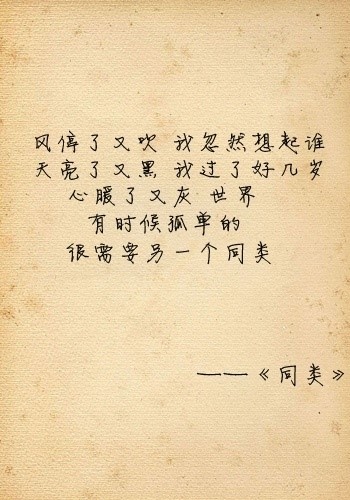 风停了又吹 我忽然想起谁
天亮了又黑 我过了好几岁
心暖了又灰 世界
有时候孤单的
很需要另一个同类
——《同类》